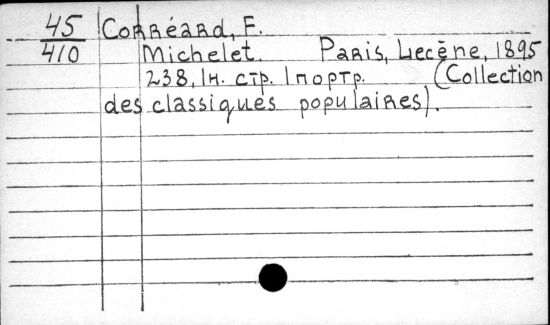 45 Corréard, F.
410 Michelet. Paris, Lecène, 1895
238, 1н. стр. 1 портр. (Collection
des classiques populaires).